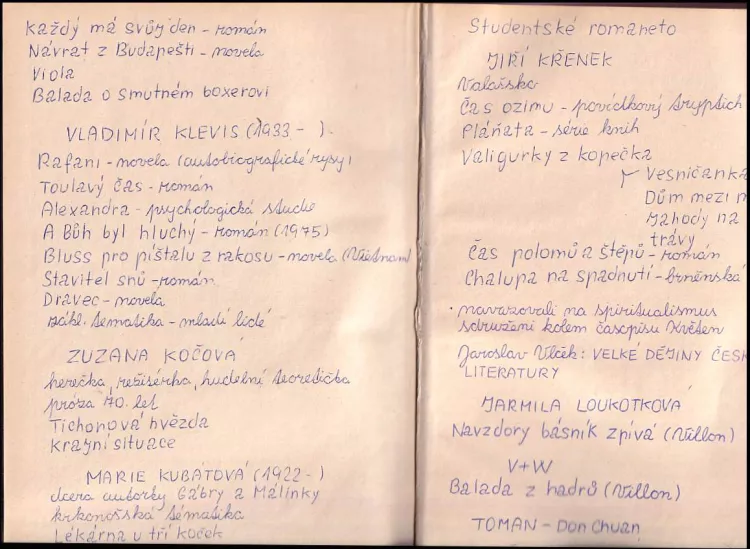 Každý má svůj den - román
Návrat z Budapešti - novela
Viola
Balada o smutném boxerovi
VLADIMÍR KLEVIS (1933 - )
Rafani - novela (autobiografické rysy)
Toulavý čas - román
Alexandra - psychologická studie
A Bůh byl hluchý - román (1975)
Bluss pro píštalu z rákosu - novela (Vietnam)
Stavitel snů - román
Dravec - novela
zákl. tematika - mladí lidé
ZUZANA KOČOVÁ
herečka, režisérka, hudební teoretička
próza 70. let
Tichonova hvězda
Krajní situace
MARIE KUBÁTOVÁ (1922 - )
dcera autorky Gábry a Málinky
krkonošská tématika
Lékárna u tří koček
Studentské romaneto
JIŘÍ KŘENEK
Valašsko
Čas ozimu - povídkový tryptich
Pláňata - série knih
Valigurky z kopečka
Vesničanka
Dům mezi
Jahody na
trávy
Čas polomů a štěpů - román
Chalupa na spadnutí - brněnská
• navazovali na spiritualismus
sdruženi kolem časopisu Květen
Jaroslav Vlček: VELKÉ DĚJINY ČESK
LITERATURY
JARMILA LOUKOTKOVÁ
Navzdory básník zpívá (Villon)
V+W
Balada z hadrů (Villon)
TOMAN - Don Chuan